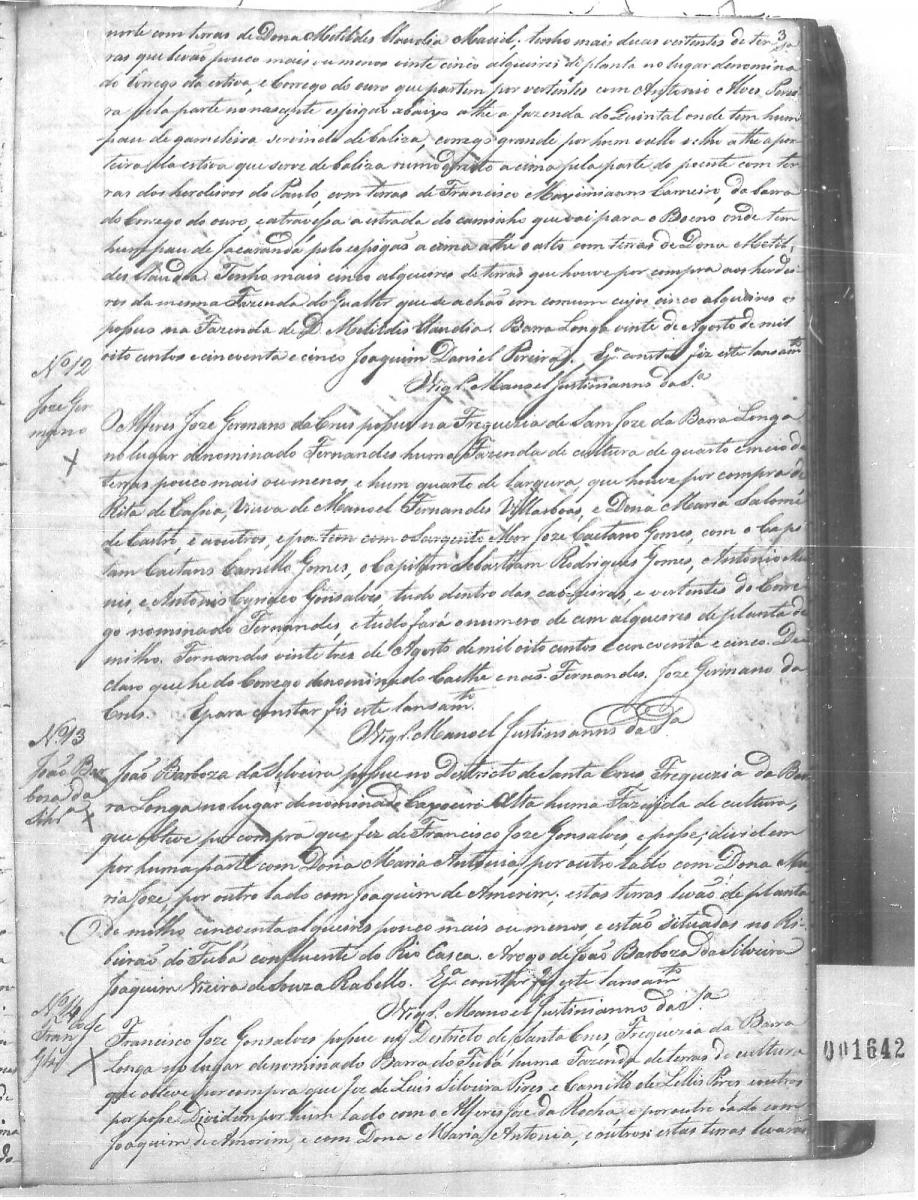 3
norte com terras de Dona Metildes Claudia Maciel, tenho mais duas vertentes de ter
ras que levão pouco mais ou menos vinte cinco alqueires de planta no lugar denomina
do Corrego da estiva, e Corrego do ouro que partem por vertentes com Antonio Alves Perei
ra pela parte no nascente espigão abaixo athe a fazenda do Quintal onde tem hum
pau de gameleira servindo de baliza, corrego grande por hum e athe a por
teira da estiva que serve de baliza rumo direito acima pela parte do poente com ter
ras dos herdeiros do Paulo, com terras de Francisco Maximianno Carneiro, da barra
do Corrego do ouro, e atravessa a estrada do caminho que vai para o Boeno onde tem
hum pau de Jacaranda pelo espigão acima athe o alto com terras de Dona Metil
des Claudia. Tenho mais cinco alqueires de terras que houve por compra aos herdei
ros da mesma Fazenda do Gualter que se achão em comum cujos cisco alqueires os
possuo na Fazenda de D. Metildes Claudia. Barra Longa vinte de Agosto de mil
oito centos e cincoenta e cinco Joaquim Daniel Pereira. E pa. constar fiz este lansamto.
Vigro. Manoel Justinianno da Sa.
No. 12
Joze Ger
mano
O Alferes Joze Germano da Crus possue na Freguezia de Sam Joze da Barra Longa
no lugar denominado Fernandes huma Fazenda de cultura de quarto e meio de
terras pouco mais ou menos e hum quarto de largura, que houve por compra de
Rita de Cassia, Viuva de Manoel Fernandes Villasboas, e Dona Maria Salomé
de Castro, e a outros, e partem com o Sargento Mor Joze Caetano Gomes, com o Capi
tam Caetano Camillo Gomes, o Capitam Sebastiam Rodrigues Gomes, Antonio
e Antonio Gonsalves tudo dentro das cabeceiras, e vertentes do Corre
go nominado Fernandes, e tudo fará o numero de cem alqueires de planta de
milho. Fernandes vinte tres de Agosto de mil oito centos e cincoenta e cinco. De
claro que he do Corrego denominado Caethe e não Fernandes. Joze Germano da
Crus. E para constar fis este lansamto.
Vigro. Manoel Justinianno da Sa.
No. 13
João Bar
boza da
Silva
João Barboza da Silveira possue no Destricto de Santa Crus Freguezia da Bar
ra Longa no lugar denominado Capoeira Alta huma Fazenda de cultura,
que obteve por compra que fez de Francisco Joze Gonsalves, e posse; dividem
por huma parte com Dona Maria Antonia, por outro lado com Dona Ma
ria Joze, por outro lado com Joaquim de Amorim, estas terras levão de planta
de milho cincoenta alqueires pouco mais ou menos e estão situadas no Ri-
beirão do Tubá confluente do Rio Casca. Arogo de João Barboza da Silveira
Joaquim Vieira de Souza Rabello. E pa. constar fis este lansamto.
Vigro. Manoel Justinianno da Sa.
No. 14
Fran Joze
Glz
Francisco Joze Gonsalves possue no Destricto de Santa Crus, Freguezia da Barra
Longa no lugar denominado Barra do Tubá huma Fazenda de terras de cultura
que obteve por compra que fez de Luis Silveira Pires e Camillo de Lellis Pires e outros
por posse Dividem por hum lado com o Alferes Joze da Rocha e por outro lado com
Joaquim de Amorim, e com Dona Maria Antonia, e outros: estas terras levarão
001642